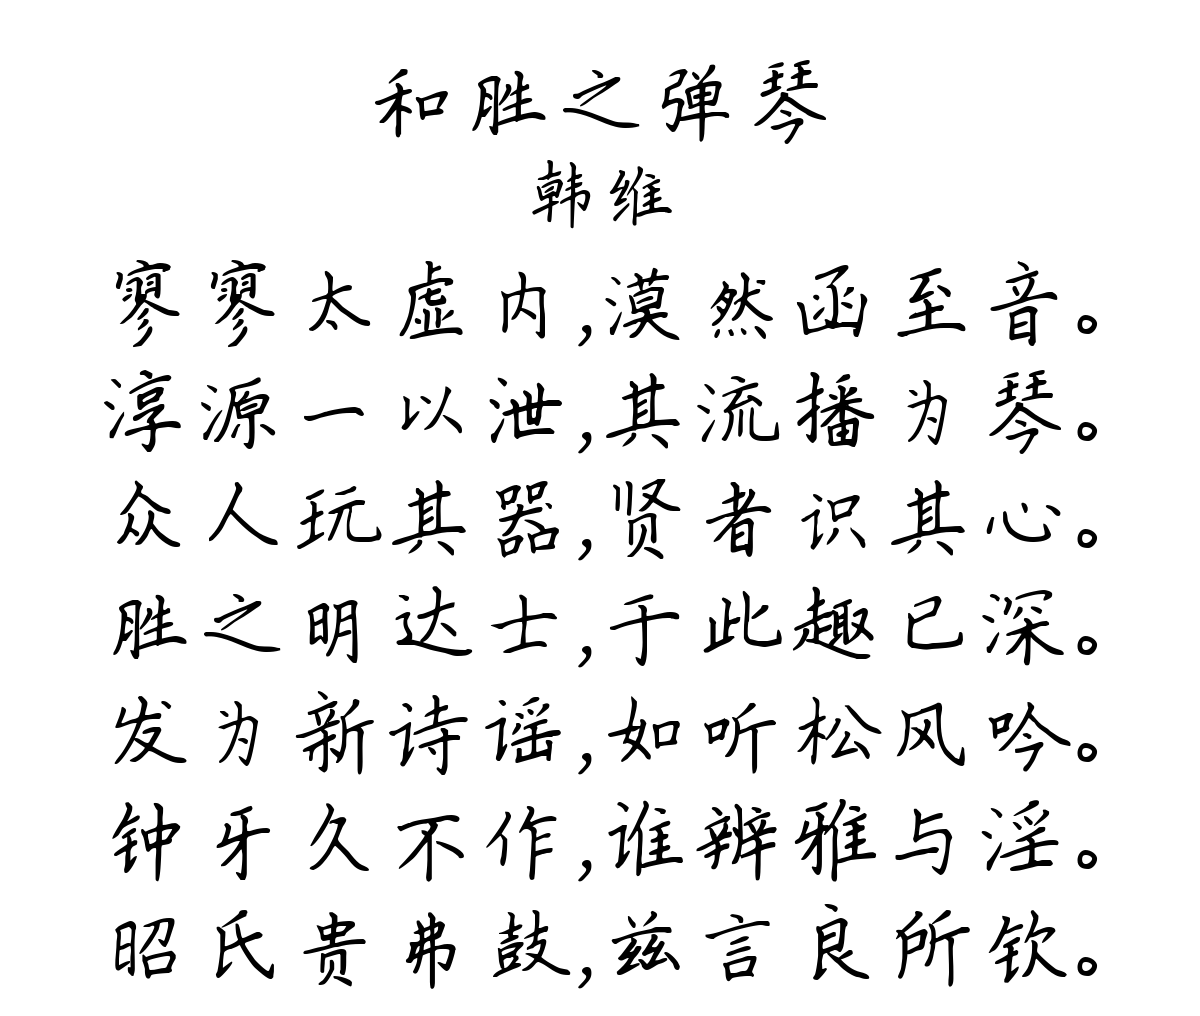 和胜之弹琴
韩维
寥寥太虚内,漠然函至音。
淳源一以泄,其流播为琴。
众人玩其器,贤者识其心。
胜之明达士,于此趣已深。
发为新诗谣,如听松风吟。
钟牙久不作,谁辨雅与淫。
昭氏贵弗鼓,兹言良所钦。